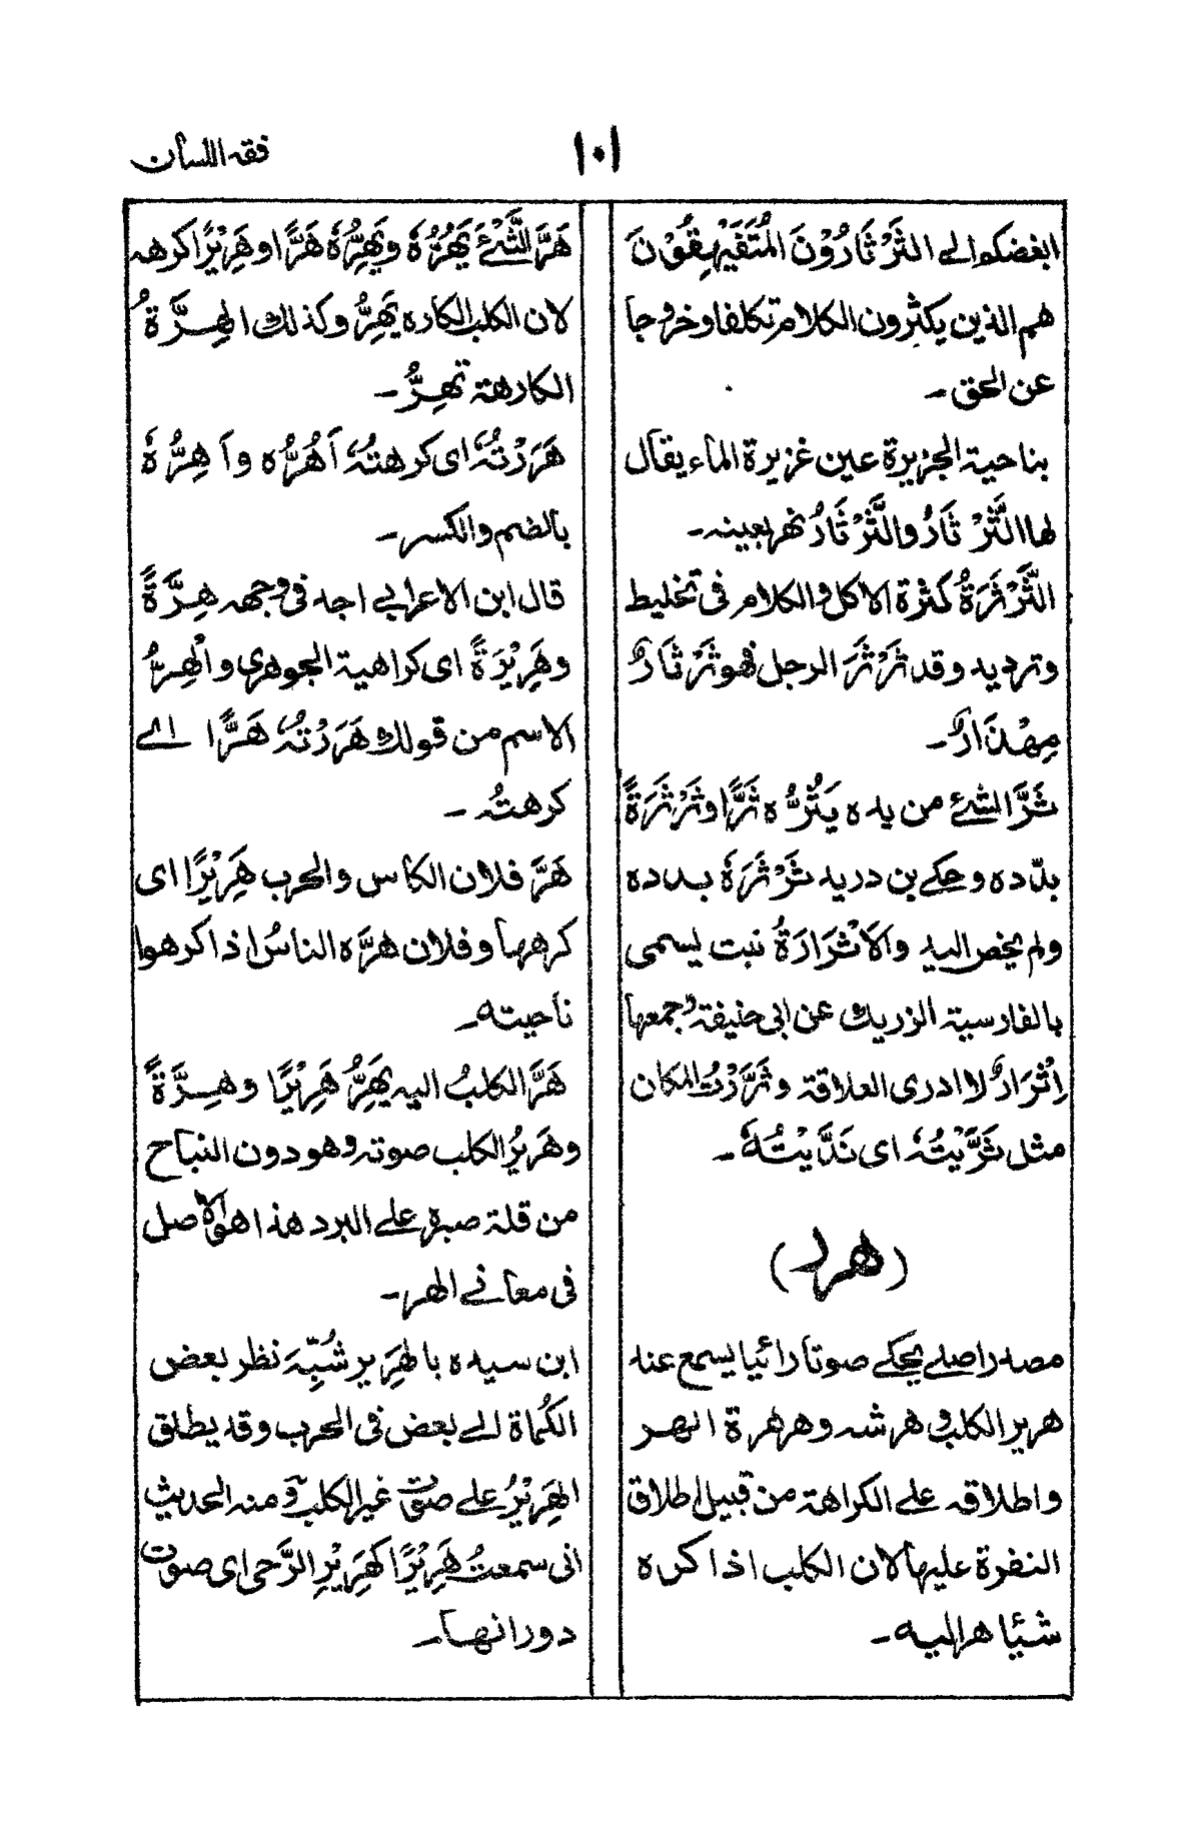 ١٠١
فقہ اللسان
ابغضکم الے الثَّرْثَارُوْنَ الْمُتَفَيْهِقُوْنَ
هم الذین یکثرون الکلام تکلفا وخروجا
عن الحق۔
بناحیۃ الجزیرۃ عین غزیرۃ الماء یقال
لها الثَّرْ ثَارُ والثَّرْثَارُ نهر بعینہ۔
الثَّرْثَرَۃُ کثرۃ الاکل والکلام فی تخلیط
وتردید وقد ثَرْثَرَ الرجل فهو ثَرْثَارٌ
مِهْذَارٌ۔
ثَرَّ الشئے من یدہ یَثُرُّہ ثَرًّا وثَرْثَرَۃً
بدّدہ وحکے بن درید ثَرْثَرَہٗ بددہ
ولم یخص الید والاَثْرَارَۃُ نبت یسمی
بالفارسیۃ الزریک عن ابی حنیفۃ وجمعها
اِثْرَارٌ لا ادری العلاقۃ وثَرَّرْتُ المکان
مثل ثَرَّيْتُہٗ ای نَدَّيْتُهٗ۔
(هرر)
مصدر اصلے یحکے صوتا رائیا یسمع عند
هریر الکلب وهرشہ وهرهرۃ الهر
واطلاقہ علے الکراهۃ من قبیل اطلاق
النفرۃ علیها لان الکلب اذا کرہ
شیئا هر الیه۔
هَرَّ الشَّیْئَ یَهُرُّہٗ ویَهِرُّہٗ هَرًّا وهَرِیْرًا کرهه
لان الکلب الکارہ یَهِرُّ وکذلك الهِرَّۃُ
الکارهۃ تَهِرُّ۔
هَرَرْتُہٗ ای کرهتُہٗ اَهُرُّہ واَهِرُّہٗ
بالضم والکسر۔
قال ابن الاعرابی اجد فی وجهہ هِرَّۃً
وهَرِیْرَۃً ای کراهیۃ الجوهری والْهِرُّ
الاسم من قولك هَرَرْتُہٗ هَرًّا اے
کرهتُہ۔
هَرَّ فلان الکاس والحرب هَرِیْرًا ای
کرهها وفلان هرَّہ الناسُ اذا کرهوا
ناحیته۔
هَرَّ الکلبُ الیه یَهِرُّ هَرِیْرًا وهِرَّۃً
وهَرِیْرُ الکلب صوتہ وهو دون النباح
من قلۃ صبرہ علے البرد هذا هو الاصل
فی معانے الهر۔
ابن سیدہ بالهَرِیر شُبِّہَ نظر بعض
الکُماۃ الے بعض فی الحرب وقد یطلق
الهَرِیْرُ علے صوت غیر الکلب ومنه الحدیث
انی سمعتُ هَرِیْرًا کَهَرِیْرِ الرَّحی ای صوت
دورانها۔